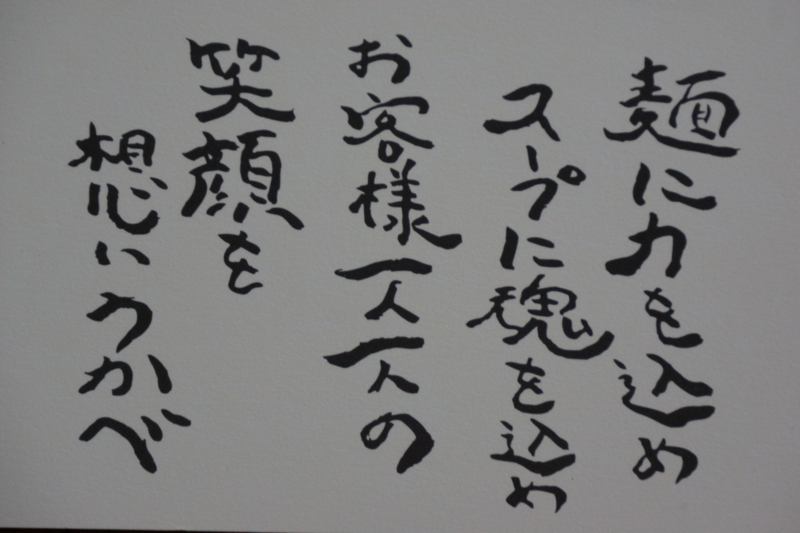 麺に力を込め
スープに魂を込め
お客様一人一人の
笑顔を
想いうかべ